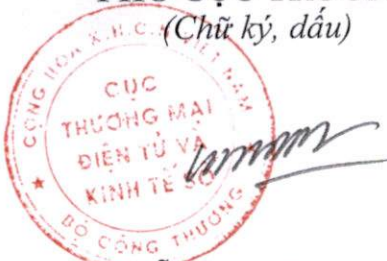 (Chữ ký, dấu)
CỘNG HÒA X.H.C.N VIỆT NAM
CỤC
THƯƠNG MẠI
ĐIỆN TỬ VÀ
KINH TẾ SỐ
★ BỘ CÔNG THƯƠNG